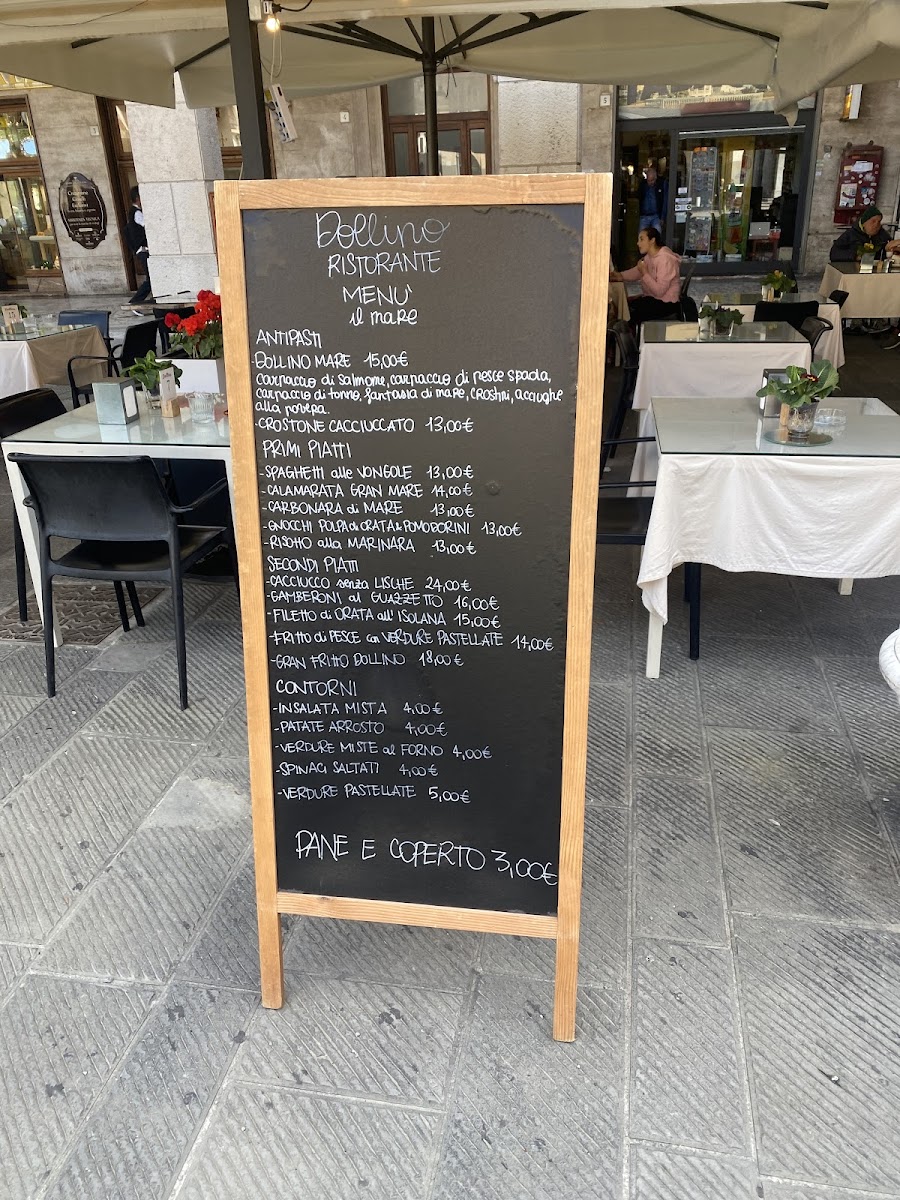 Dollino
RISTORANTE
MENU'
il mare
ANTIPASTI
-DOLLINO MARE 15,00€
carpaccio di salmone, carpaccio di pesce spada,
carpaccio di tonno, fantasia di mare, crostini, acciughe
alla povera.
-CROSTONE CACCIUCCATO 13,00€
PRIMI PIATTI
-SPAGHETTI alle VONGOLE 13,00€
-CALAMARATA GRAN MARE 14,00€
-CARBONARA di MARE 13,00€
-GNOCCHI POLPA di ORATA e POMODORINI 13,00€
-RISOTTO alla MARINARA 13,00€
SECONDI PIATTI
-CACCIUCCO senza LISCHE 24,00€
-GAMBERONI al GUAZZETTO 16,00€
-FILETTO di ORATA all'ISOLANA 15,00€
-FRITTO di PESCE con VERDURE PASTELLATE 14,00€
-GRAN FRITTO DOLLINO 18,00€
CONTORNI
-INSALATA MISTA 4,00€
-PATATE ARROSTO 4,00€
-VERDURE MISTE al FORNO 4,00€
-SPINACI SALTATI 4,00€
-VERDURE PASTELLATE 5,00€
PANE E COPERTO 3,00€